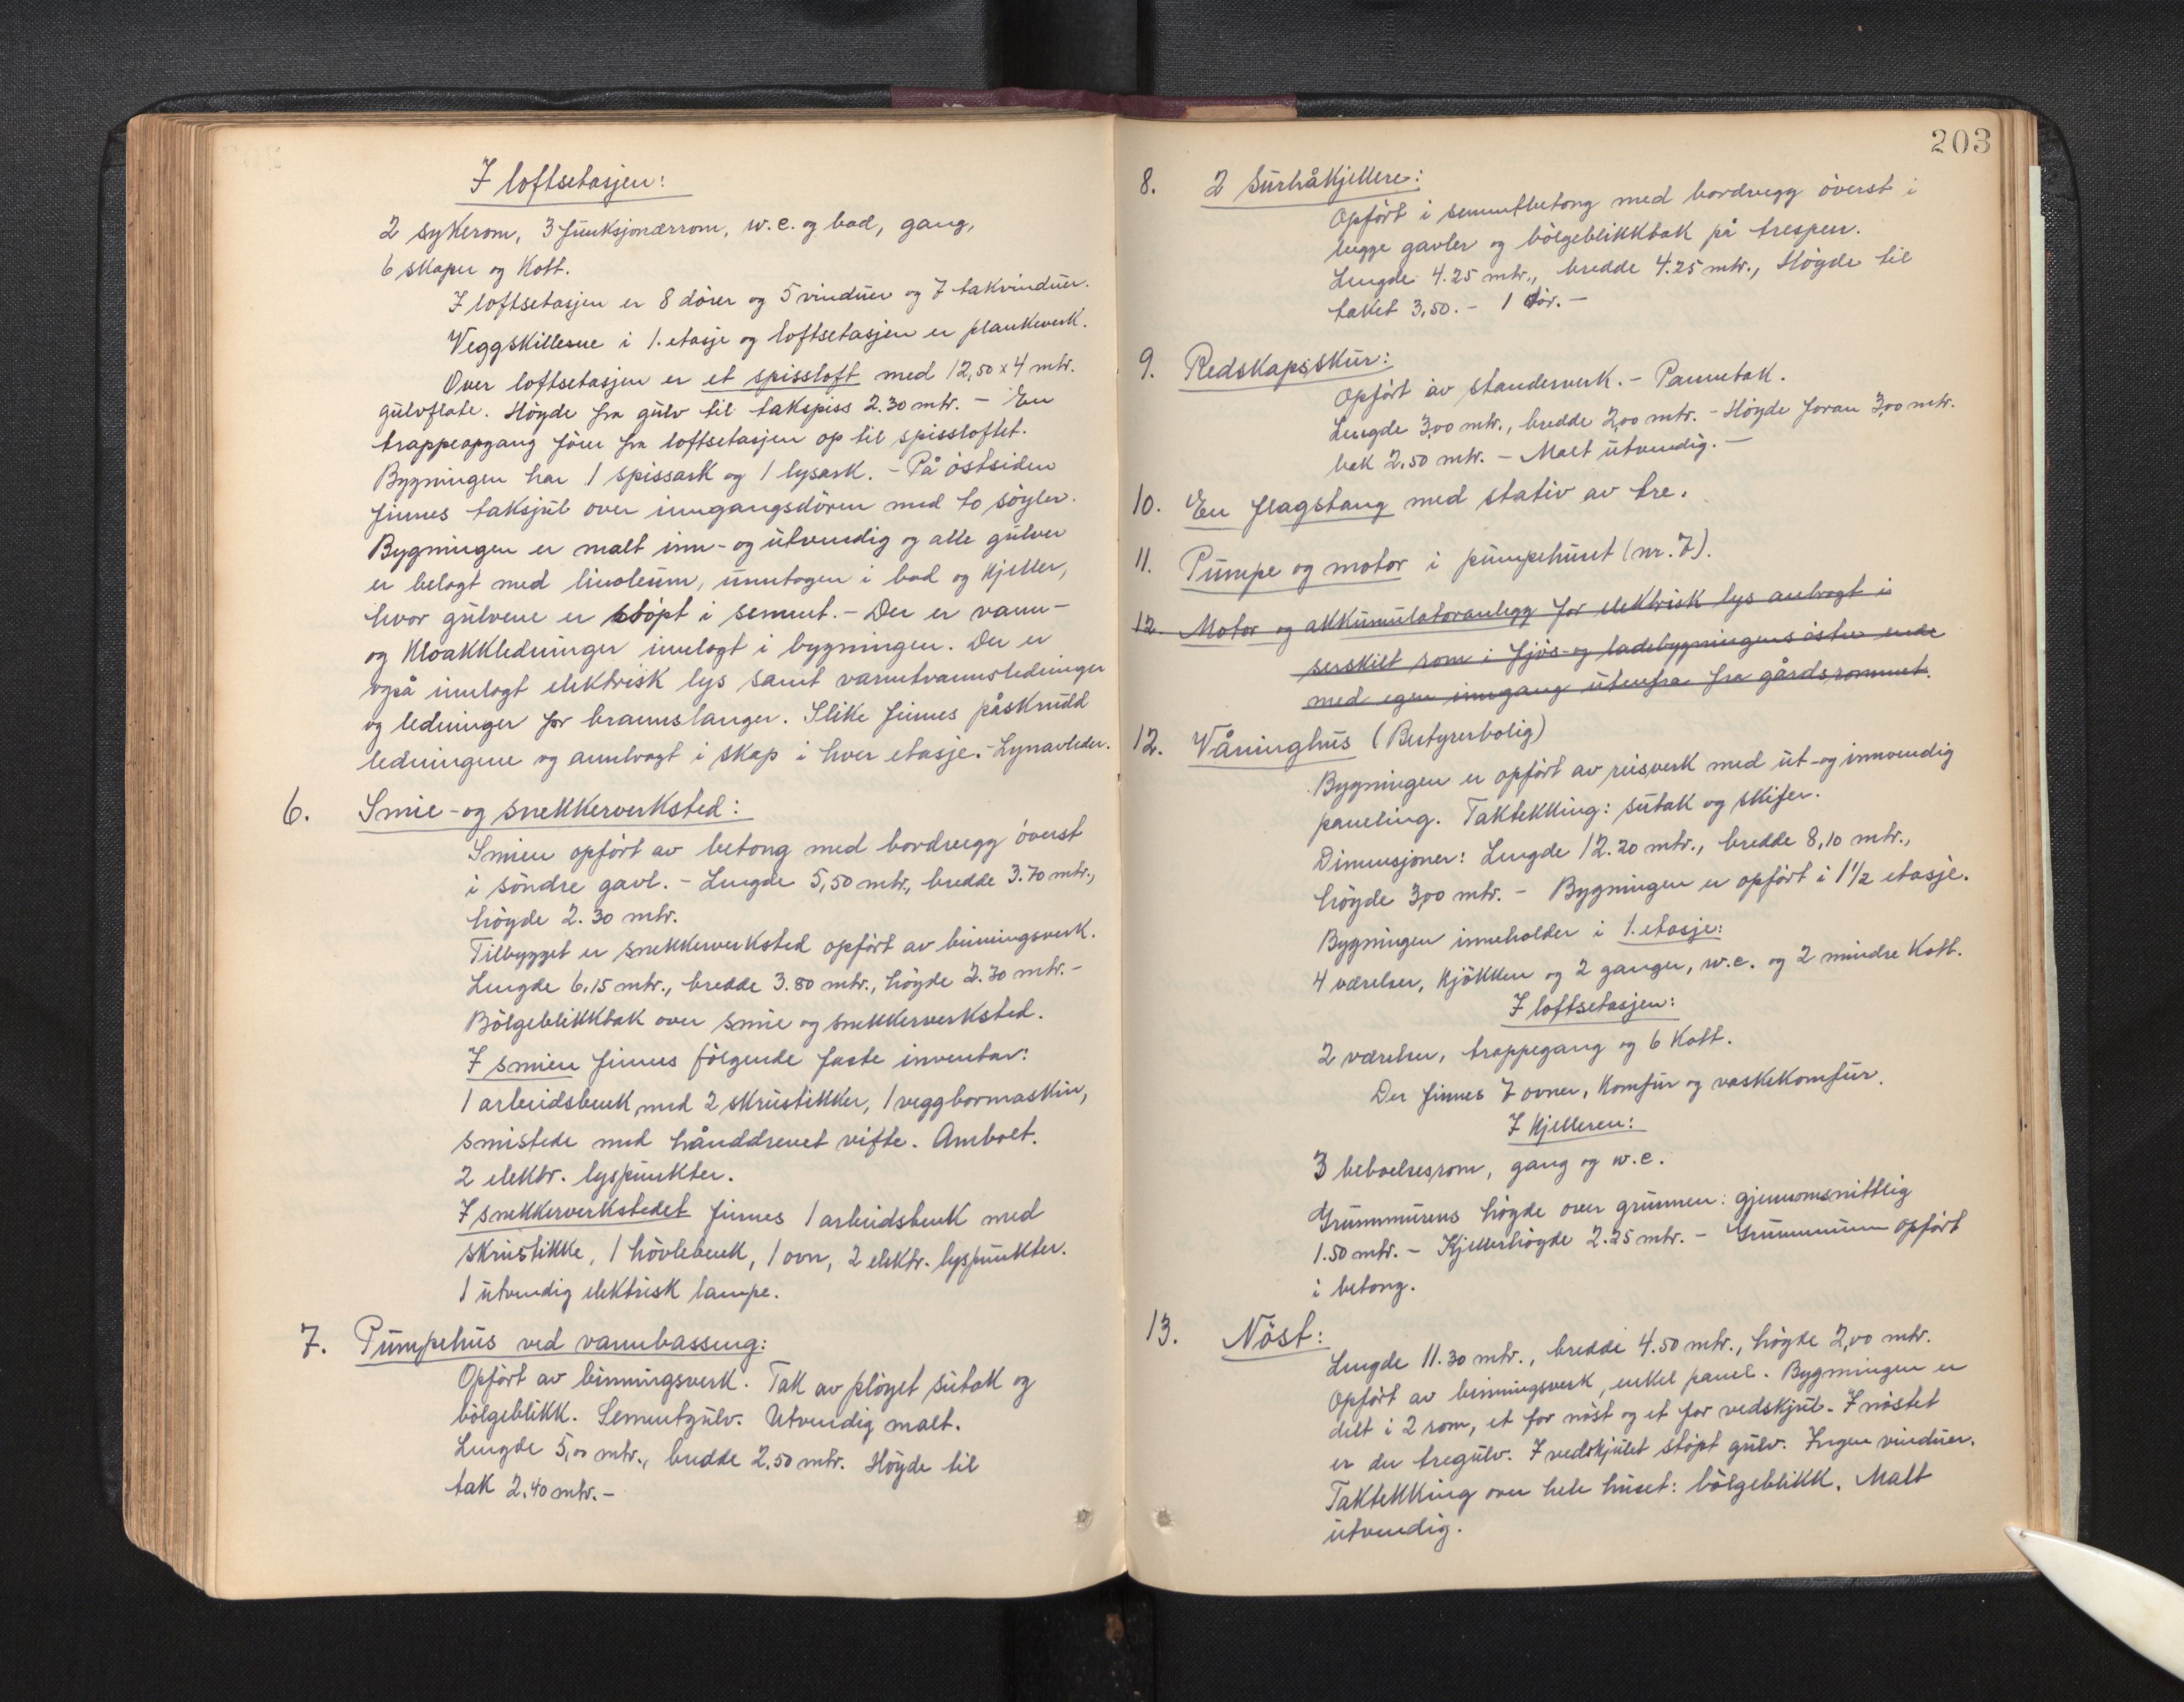 I loftsetasjen:
2 sykerom, 3 funksjonærrom, w.c. og bad, gang,
6 skaper og kott.
I loftsetasjen er 8 dörer og 5 vinduer og 7 takvinduer.
Veggskillerne i 1. etasje og loftsetasjen er plankeverk.
Over loftsetasjen er et spissloft med 12,50 x 4 mtr.
gulvflate. Höyde fra gulv til takspiss 2.30 mtr. – En
trappeopgang förer fra loftsetasjen op til spissloftet.
Bygningen har 1 spissark og 1 lysark. – På östsiden
finnes takskjul over inngangsdören med to söyler.
Bygningen er malt inn- og utvendig og alle gulver
er belagt med linoleum, unntagen i bad og kjeller,
hvor gulvene er stöpt i sement. – Der er vann-
og kloakkledninger innlagt i bygningen. Der er
også innlagt elektrisk lys samt varmtvannsledninger
og ledninger for brannslanger. Slike finnes påskrudd
ledningene og annbragt i skap i hver etasje. – Lynavleder.
6. Smie- og snekkerverksted:
Smien opfört av betong med bordvegg överst
i söndre gavl. – Lengde 5,50 mtr., bredde 3.70 mtr.,
höyde 2.30 mtr.
Tilbygget er snekkerverksted opfört av binningsverk.
Lengde 6.15 mtr., bredde 3.80 mtr., höyde 2.30 mtr. –
Bölgeblikktak over smie og snekkerverksted.
I smien finnes fölgende faste inventar:
1 arbeidsbenk med 2 skrustikker, 1 veggbormaskin,
smistede med hånddrevet vifte. Ambolt.
2 elektr. lyspunkter.
I snekkerverkstedet finnes 1 arbeidsbenk med
skrustikke, 1 hövlebenk, 1 ovn, 2 elektr. lyspunkter.
1 utvendig elektrisk lampe.
7. Pumpehus ved vannbasseng:
Opfört av binningsverk. Tak av plöyet sutak og
bölgeblikk. Sementgulv. Utvendig malt.
Lengde 5,00 mtr., bredde 2.50 mtr. Höyde til
tak 2.40 mtr. –
203
8. 2 Surhåkjellere:
Opfört i sementbetong med bordvegg överst i
begge gavler og bölgeblikktak på tresperr.
Lengde 4.25 mtr., bredde 4.25 mtr., Höyde til
taket 3,50. – 1 dör. –
9. Redskapsskur:
Opfört av stenderverk. – Pannetak.
Lengde 3,00 mtr., bredde 2,00 mtr. – Höyde foran 3,00 mtr.
bak 2.50 mtr. – Malt utvendig. –
10. En flagstang med stativ av tre.
11. Pumpe og motor i pumpehuset (nr. 7).
12. Motor og akkumulatoranlegg for elektrisk lys anbragt i
serskilt rom i fjös- og ladebygningens östre ende
med egen inngang utenfra fra gårdsrommet.
12. Våninghus (Bestyrerbolig)
Bygningen er opfört av reisverk med ut- og innvendig
paneling. Taktekking: sutak og skifer.
Dimensjoner: Lengde 12.20 mtr., bredde 8,10 mtr.,
höyde 3,00 mtr. – Bygningen er opfört i 1 1/2 etasje.
Bygningen inneholder i 1. etasje:
4 værelser, kjökken og 2 ganger, w.c. og 2 mindre kott.
I loftsetasjen:
2 værelser, trappegang og 6 kott.
Der finnes 7 ovner, komfur og vaskekomfur.
I kjelleren:
3 beboelsesrom, gang og w.c.
Grunnmurens höyde over grunnen: gjennomsnittlig
1.50 mtr. – Kjellerhöyde 2.25 mtr. – Grunnmuren opfört
i betong.
13. Nöst:
Lengde 11.30 mtr., bredde 4.50 mtr., höyde 2,00 mtr.
Opfört av binningsverk, enkel panel. Bygningen er
delt i 2 rom, et for nöst og et for vedskjul. I nöstet
er der tregulv. I vedskjulet stöpt gulv. Ingen vinduer.
Taktekking over hele huset: bölgeblikk. Malt
utvendig.